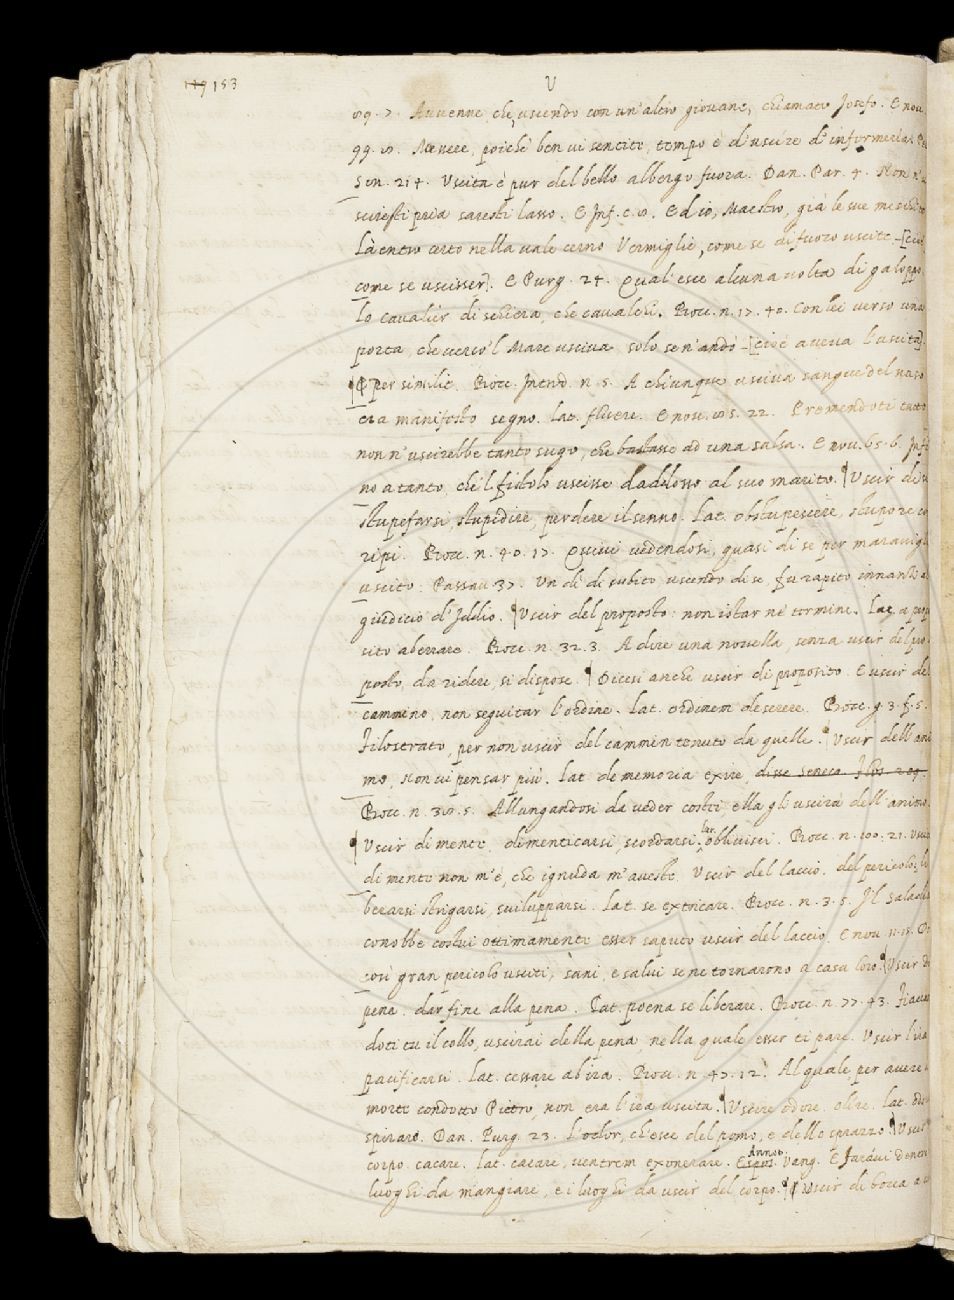 149 153
V
89. 7. Auuenne che, uscendo con un'altro giouane, chiamato Josefo. E nou.
99. 10. Messere, poichè ben ui sentite, tempo è d'uscire d'infermeria. Pe.
Son. 214. Vscita è pur del bello albergo fuora. Dan. Par. 4. Non n'u
sciresti pria saresti lasso. E Inf. c. 8. Ed io, Maestro, già le sue meschite
Là entro certo nella ualle cerno Vermiglie, come se di fuoco uscite - [cioè
come se uscisser]. E Purg. 24. Qual'esce alcuna uolta di galoppo
lo caualier di schiera, che caualchi. Bocc. n. 17. 40. Con lei uerso una
porta, che uerso'l Mare usciua, solo se n'andò - [cioè aueua l'uscita].
¶ E per similit. Bocc. Introd. n. 5. A chiunque usciua sangue del naso
era manifesto segno. Lat. fluere. E nou. 85. 22. Premendoti tutto
non n'uscirebbe tanto sugo, che bastasse ad una salsa. E nou. 65. 6. Infi
no a tanto, che'l fistolo uscisse daddosso al suo marito. ¶ Vscir di se
stupefarsi, stupidire, perdere il senno. Lat. obstupescere, stupore cor
ripi. Bocc. n. 40. 17. Quiui uedendosi, quasi di se per marauigl
uscito. Passau. 37. Un dì di subito uscendo di se, fu rapito innanzi al
giudicio d'Iddio. ¶ Vscir del proposto: non istar ne' termini. Lat. a propo
sito aberrare. Bocc. n. 32. 3. A dire una nouella, senza uscir del pro
posto, da ridere, si dispose. ¶ Dicesi anche uscir di proposito. E uscir del
cammino, non seguitar l'ordine. Lat. ordinem deserere. Bocc. g. 3. f. 5.
Filostrato, per non uscir del cammin tenuto da quelle. ¶ Vscir dell'ani
mo, Non ui pensar più. Lat. de memoria exire, disse Seneca
Bocc. n. 30. 5. Allungandosi da ueder costei, ella gli uscirà dell'animo.
¶ Vscir di mente, dimenticarsi, scordarsi. Lat. obliuisci. Bocc. n. 100. 21. Vscito
di mente non m'è, che ignuda m'aueste. Vscir del laccio. del pericolo: li
berarsi strigarsi, suilupparsi. Lat. se extricare. Bocc. n. 3. 5. Il Saladi
conobbe costui ottimamente esser saputo uscir del laccio. E nou. 11. 15. Di
così gran pericolo usciti, sani, e salui se ne tornarono a casa loro. ¶ Vscir di
pena. dar fine alla pena. Lat. poena se liberare. Bocc. n. 77. 43. Fiaccan
doti tu il collo, uscirai della pena, nella quale esser ti pare. Vscir l'ira
pacificarsi. Lat. cessare ab ira. Bocc. n. 47. 12. Al quale, per auere a
morte condotto Pietro, non era l'ira uscita. ¶ Vscire odore. olire. Lat. odo
spirare. Dan. Purg. 23. L'odor, ch'esce del pomo, e dello sprazzo. ¶ Vscir
corpo. cacare. Lat. cacare, uentrem exonerare. Annot. Vang. E farui dentro
luoghi da mangiare, e i luoghi da uscir del corpo. ¶ E uscir di bocca a